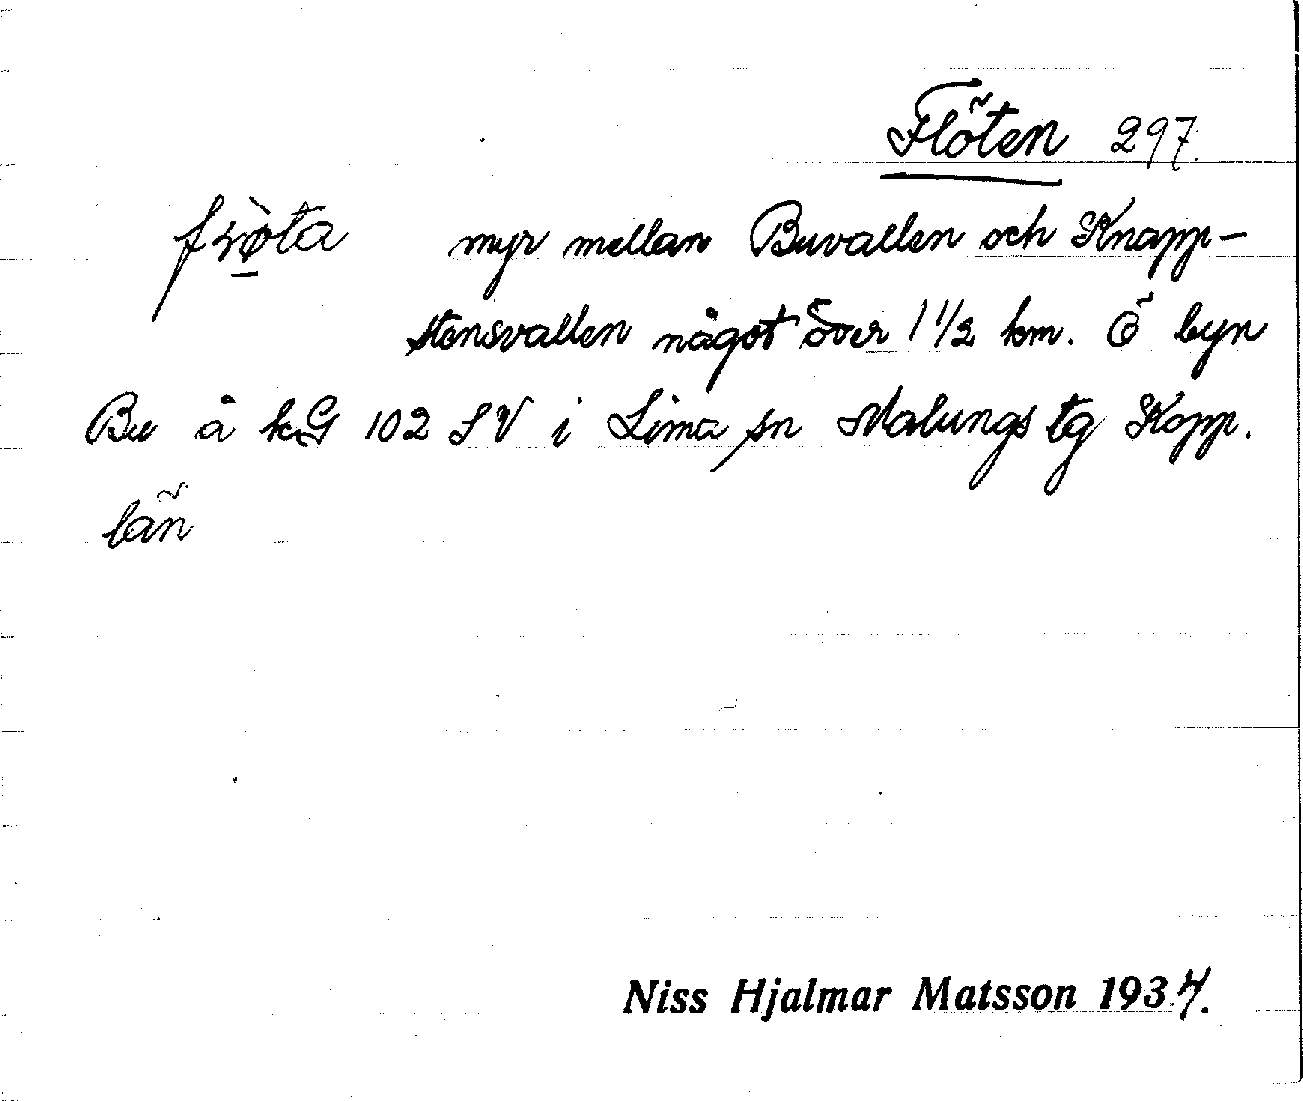 Flöten 297.
frø̀ta myr mellan Buvallen och Knapp-
stensvallen något över 1 1/2 km. Ö byn
Bu å kG 102 SV i Lima sn Malungs tg Kopp.
län
Niss Hjalmar Matsson 1937.